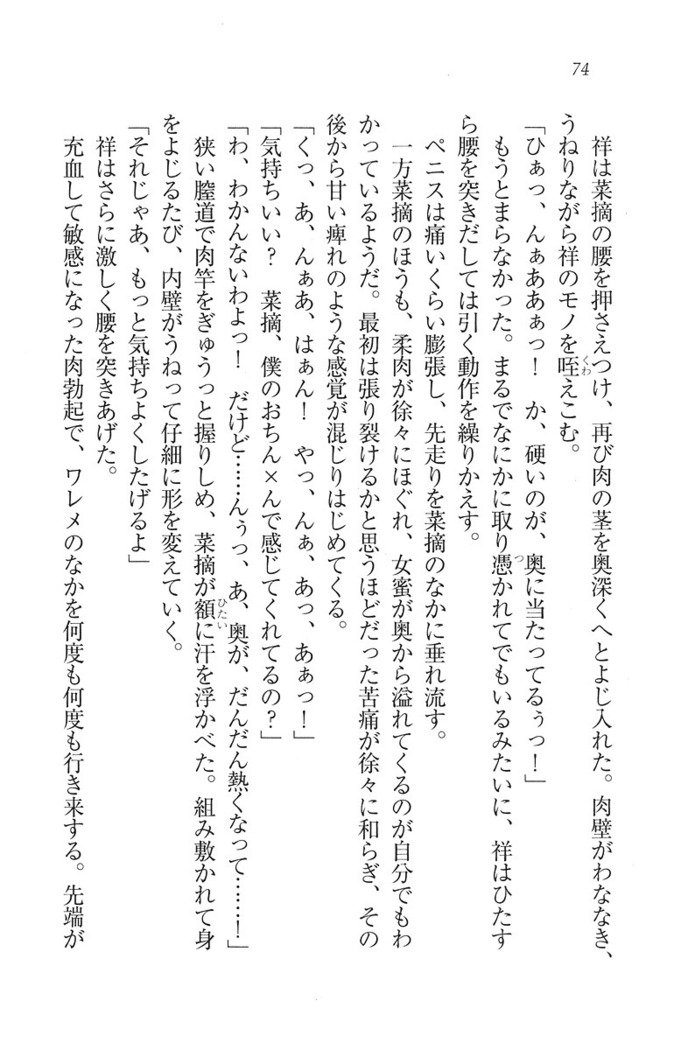 74
祥は菜摘の腰を押さえつけ、再び肉の茎を奥深くへとよじ入れた。肉壁がわななき、
うねりながら祥のモノを咥えこむ。
「ひぁっ、んぁああぁっ！　か、硬いのが、奥に当たってるぅっ！」
もうとまらなかった。まるでなにかに取り憑かれてでもいるみたいに、祥はひたす
ら腰を突きだしては引く動作を繰りかえす。
ペニスは痛いくらい膨張し、先走りを菜摘のなかに垂れ流す。
一方菜摘のほうも、柔肉が徐々にほぐれ、女蜜が奥から溢れてくるのが自分でもわ
かっているようだ。最初は張り裂けるかと思うほどだった苦痛が徐々に和らぎ、その
後から甘い痺れのような感覚が混じりはじめてくる。
「くっ、あ、んぁあ、はぁん！　やっ、んぁ、あっ、あぁっ！」
「気持ちいい？　菜摘、僕のおちん×んで感じてくれてるの？」
「わ、わかんないわよっ！　だけど……んぅっ、あ、奥が、だんだん熱くなって……！」
狭い膣道で肉竿をぎゅうっと握りしめ、菜摘が額に汗を浮かべた。組み敷かれて身
をよじるたび、内壁がうねって仔細に形を変えていく。
「それじゃあ、もっと気持ちよくしたげるよ」
祥はさらに激しく腰を突きあげた。
充血して敏感になった肉勃起で、ワレメのなかを何度も何度も行き来する。先端が